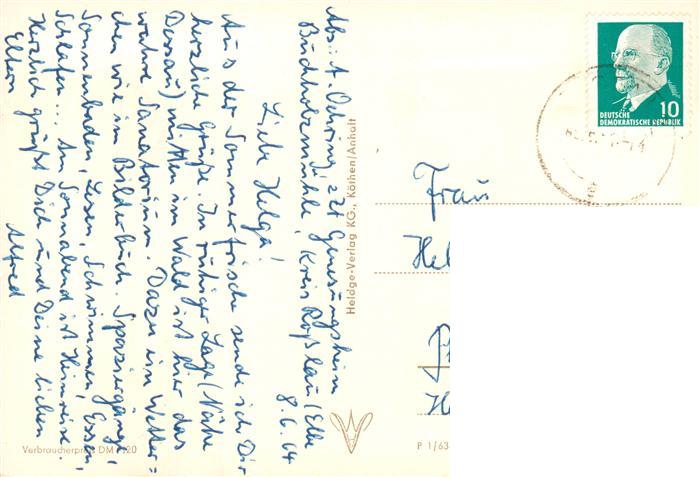 Abs: A. Oehring, z Zt Genesungsheim
Buchholzmühle, Kreis Roßlau/Elbe
8.6.64
Liebe Helga!
Aus der Sommerfrische sende ich Dir
herzliche Grüße. In ruhiger Lage (Nähe
Dessau) mitten im Wald ist hier das
wahre Sanatorium. Dazu ein Wetter=
chen wie im Bilderbuch. Spaziergänge,
Sonnenbaden, Lesen, Schwimmen, Essen,
Schlafen... Am Sonnabend ist Heimreise.
Herzlich grüßt Dich und Deine lieben
Eltern Alfred
Verbraucherpreis DM 0,20
Heldge-Verlag KG., Köthen/Anhalt
P 1/63
10
DEUTSCHE
DEMOKRATISCHE REPUBLIK
Frau
Hel